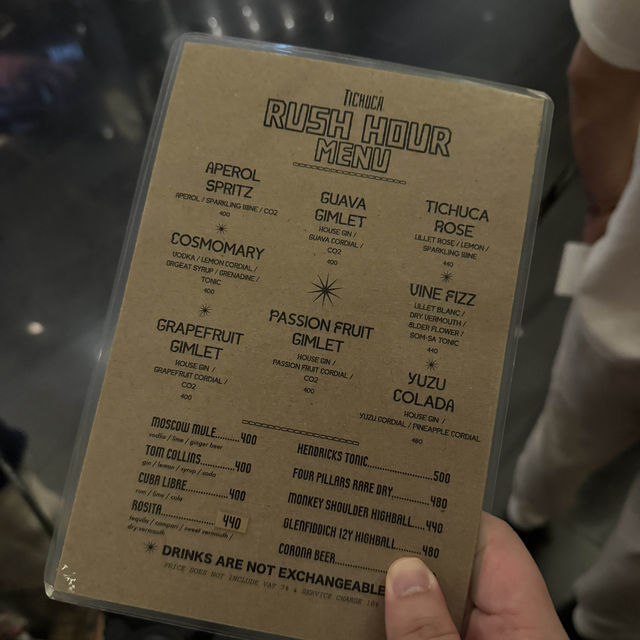 TICHUCA
RUSH HOUR
MENU
APEROL
SPRITZ
APEROL / SPARKLING WINE / CO2
400
COSMOMARY
VODKA / LEMON CORDIAL /
ORGEAT SYRUP / GRENADINE /
TONIC
400
GRAPEFRUIT
GIMLET
HOUSE GIN /
GRAPEFRUIT CORDIAL /
CO2
400
GUAVA
GIMLET
HOUSE GIN /
GUAVA CORDIAL /
CO2
400
PASSION FRUIT
GIMLET
HOUSE GIN /
PASSION FRUIT CORDIAL /
CO2
400
TICHUCA
ROSE
LILLET ROSE / LEMON /
SPARKLING WINE
440
VINE FIZZ
LILLET BLANC /
DRY VERMOUTH /
ELDER FLOWER /
SOM-SA TONIC
440
YUZU
COLADA
HOUSE GIN /
YUZU CORDIAL / PINEAPPLE CORDIAL
480
MOSCOW MULE.........400
vodka / lime / ginger beer
TOM COLLINS..........400
gin / lemon / syrup / soda
CUBA LIBRE...........400
rum / lime / cola
ROSITA 440
tequila / campari / sweet vermouth /
dry vermouth
HENDRICKS TONIC..................500
FOUR PILLARS RARE DRY.........480
MONKEY SHOULDER HIGHBALL....440
GLENFIDDICH 12Y HIGHBALL......480
CORONA BEER
DRINKS ARE NOT EXCHANGEABLE
PRICE DOES NOT INCLUDE VAT 7% & SERVICE CHARGE 10%